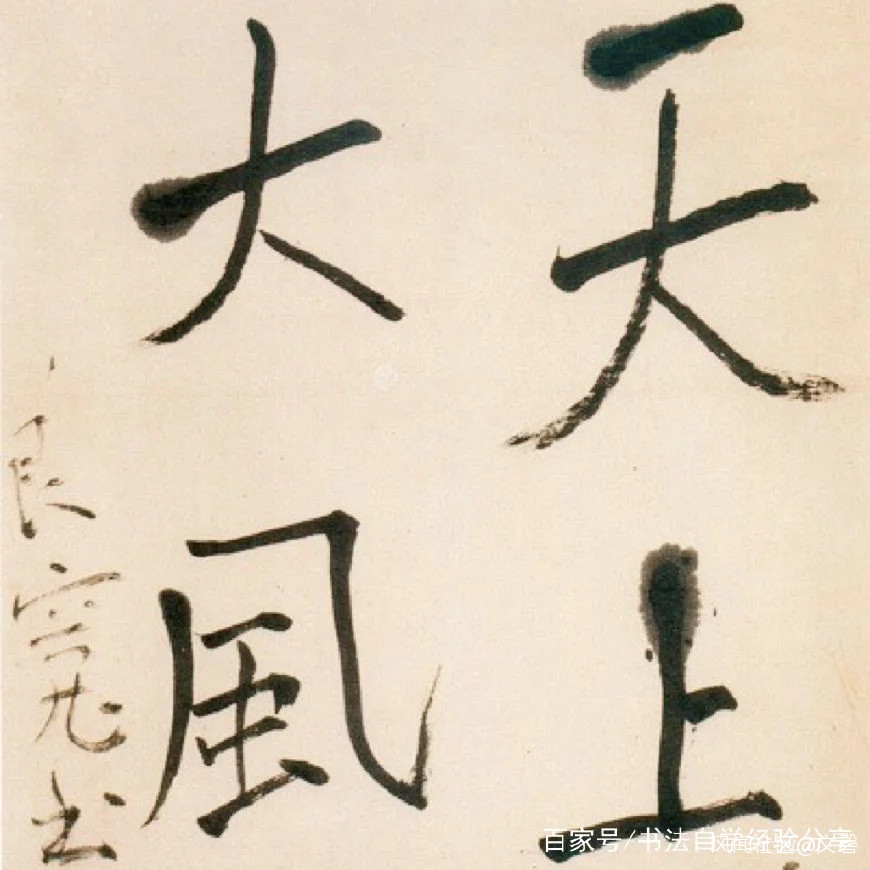 天上
大風
良寛書
百家号/书法自学经验分享